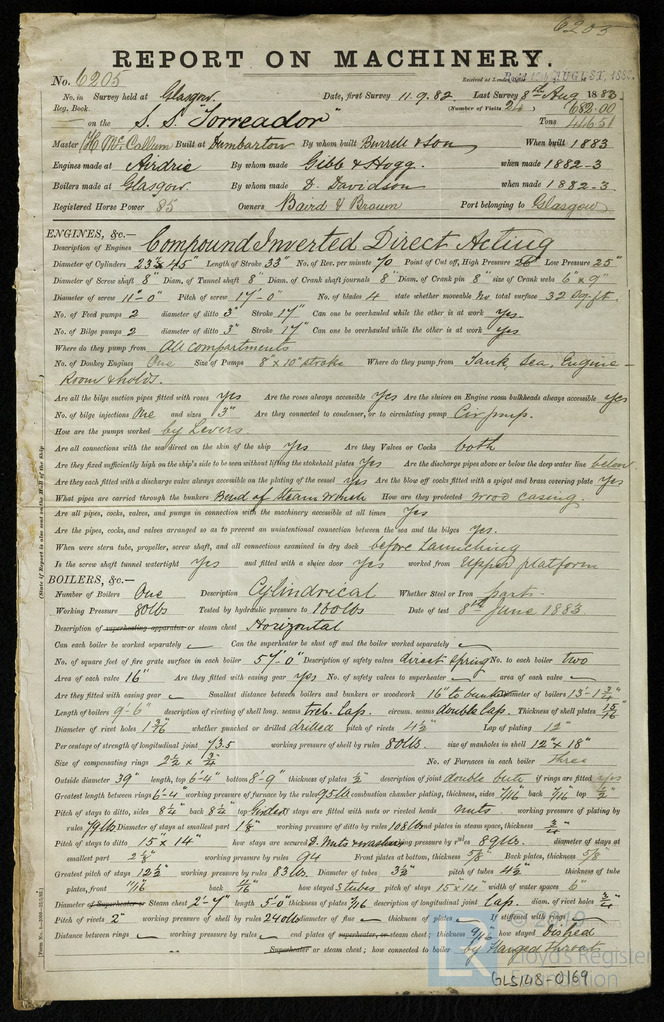 6205
REPORT ON MACHINERY.
No. 6205
Received at London Office AUGUST, 188
No. in Survey held at Glasgow. Date, first Survey 11.9.82 Last Survey 8th Aug 1883
Reg. Book. (Number of Visits 24) 682.00
on the S. S. "Torreador" Tons 446.51
Master H. McCallum Built at Dumbarton By whom built Burrell & Son When built 1883
Engines made at Airdrie By whom made Gibb & Hogg. when made 1882-3
Boilers made at Glasgow By whom made D. Davidson when made 1882-3
Registered Horse Power 85 Owners Baird & Brown Port belonging to Glasgow
ENGINES, &c.—
Description of Engines Compound Inverted Direct Acting
Diameter of Cylinders 23½ x 45" Length of Stroke 33" No. of Rev. per minute 70 Point of Cut off, High Pressure 26 Low Pressure 25"
Diameter of Screw shaft 8" Diam. of Tunnel shaft 8" Diam. of Crank shaft journals 8" Diam. of Crank pin 8" size of Crank webs 6" x 9"
Diameter of screw 11'-0" Pitch of screw 17'-0" No. of blades 4 state whether moveable no total surface 32 Sq. ft.
No. of Feed pumps 2 diameter of ditto 3" Stroke 17" Can one be overhauled while the other is at work yes.
No. of Bilge pumps 2 diameter of ditto 3" Stroke 17" Can one be overhauled while the other is at work yes
Where do they pump from All compartments
No. of Donkey Engines One Size of Pumps 8" x 10" stroke Where do they pump from Tank, Sea, Engine-
Room & holds.
Are all the bilge suction pipes fitted with roses yes Are the roses always accessible yes Are the sluices on Engine room bulkheads always accessible yes
No. of bilge injections One and sizes 3" Are they connected to condenser, or to circulating pump Cir pump.
How are the pumps worked by Levers
Are all connections with the sea direct on the skin of the ship yes Are they Valves or Cocks both
Are they fixed sufficiently high on the ship's side to be seen without lifting the stokehold plates yes Are the discharge pipes above or below the deep water line below
Are they each fitted with a discharge valve always accessible on the plating of the vessel yes Are the blow off cocks fitted with a spigot and brass covering plate yes
What pipes are carried through the bunkers Bend of Steam Winch How are they protected wood casing.
Are all pipes, cocks, valves, and pumps in connection with the machinery accessible at all times yes
Are the pipes, cocks, and valves arranged so as to prevent an unintentional connection between the sea and the bilges yes.
When were stern tube, propeller, screw shaft, and all connections examined in dry dock before launching
Is the screw shaft tunnel watertight yes and fitted with a sluice door yes worked from Upper platform
BOILERS, &c.—
Number of Boilers One Description Cylindrical Whether Steel or Iron
Working Pressure 80lbs Tested by hydraulic pressure to 160lbs Date of test 8th June 1883
Description of superheating apparatus or steam chest Horizontal
Can each boiler be worked separately Can the superheater be shut off and the boiler worked separately
No. of square feet of fire grate surface in each boiler 57'-0" Description of safety valves direct spring No. to each boiler two
Area of each valve 16" Are they fitted with easing gear yes No. of safety valves to superheater area of each valve
Are they fitted with easing gear Smallest distance between boilers and bunkers or woodwork 16" to bunker Diameter of boilers 13'-1¾"
Length of boilers 9'-6" description of riveting of shell long. seams treb. Lap. circum. seams double Lap. Thickness of shell plates 15/16
Diameter of rivet holes 1 3/16 whether punched or drilled drilled pitch of rivets 4½ Lap of plating 12"
Per centage of strength of longitudinal joint 73.5 working pressure of shell by rules 80lbs. size of manholes in shell 12" x 18"
Size of compensating rings 2½ x ¾ No. of Furnaces in each boiler Three
Outside diameter 39" length, top 6'-4" bottom 8'-9" thickness of plates ½" description of joint double butt if rings are fitted yes
Greatest length between rings 6'-4" working pressure of furnace by the rules 95lb combustion chamber plating, thickness, sides 7/16 back 7/16 top ½"
Pitch of stays to ditto, sides 8¼" back 8¼" top Girders If stays are fitted with nuts or riveted heads nuts. working pressure of plating by
rules 79lb Diameter of stays at smallest part 1⅛ working pressure of ditto by rules 108lb end plates in steam space, thickness ¾"
Pitch of stays to ditto 15" x 14" how stays are secured D. Nuts & washers working pressure by rules 89lb. diameter of stays at
smallest part 2⅛ working pressure by rules 94 Front plates at bottom, thickness ⅝" Back plates, thickness ⅝"
Greatest pitch of stays 12½" working pressure by rules 83lb. Diameter of tubes 3½" pitch of tubes 4½" thickness of tube
plates, front 11/16" back how stayed S tubes pitch of stays 15 x 14 width of water spaces 6"
Diameter of Superheater or Steam chest 2'-7" length 5'-0" thickness of plates 7/16 description of longitudinal joint Lap. diam. of rivet holes ¾"
Pitch of rivets 2" working pressure of shell by rules 240lb diameter of flue thickness of plates If stiffened with rings
Distance between rings working pressure by rules end plates of superheater, or steam chest; thickness 9/16 how stayed Dished
Superheater or steam chest; how connected to boiler by Flanged throat
(State if Report is also sent on the Hull of the Ship
© 2019
Lloyd's Register
Foundation
GLS148-0169